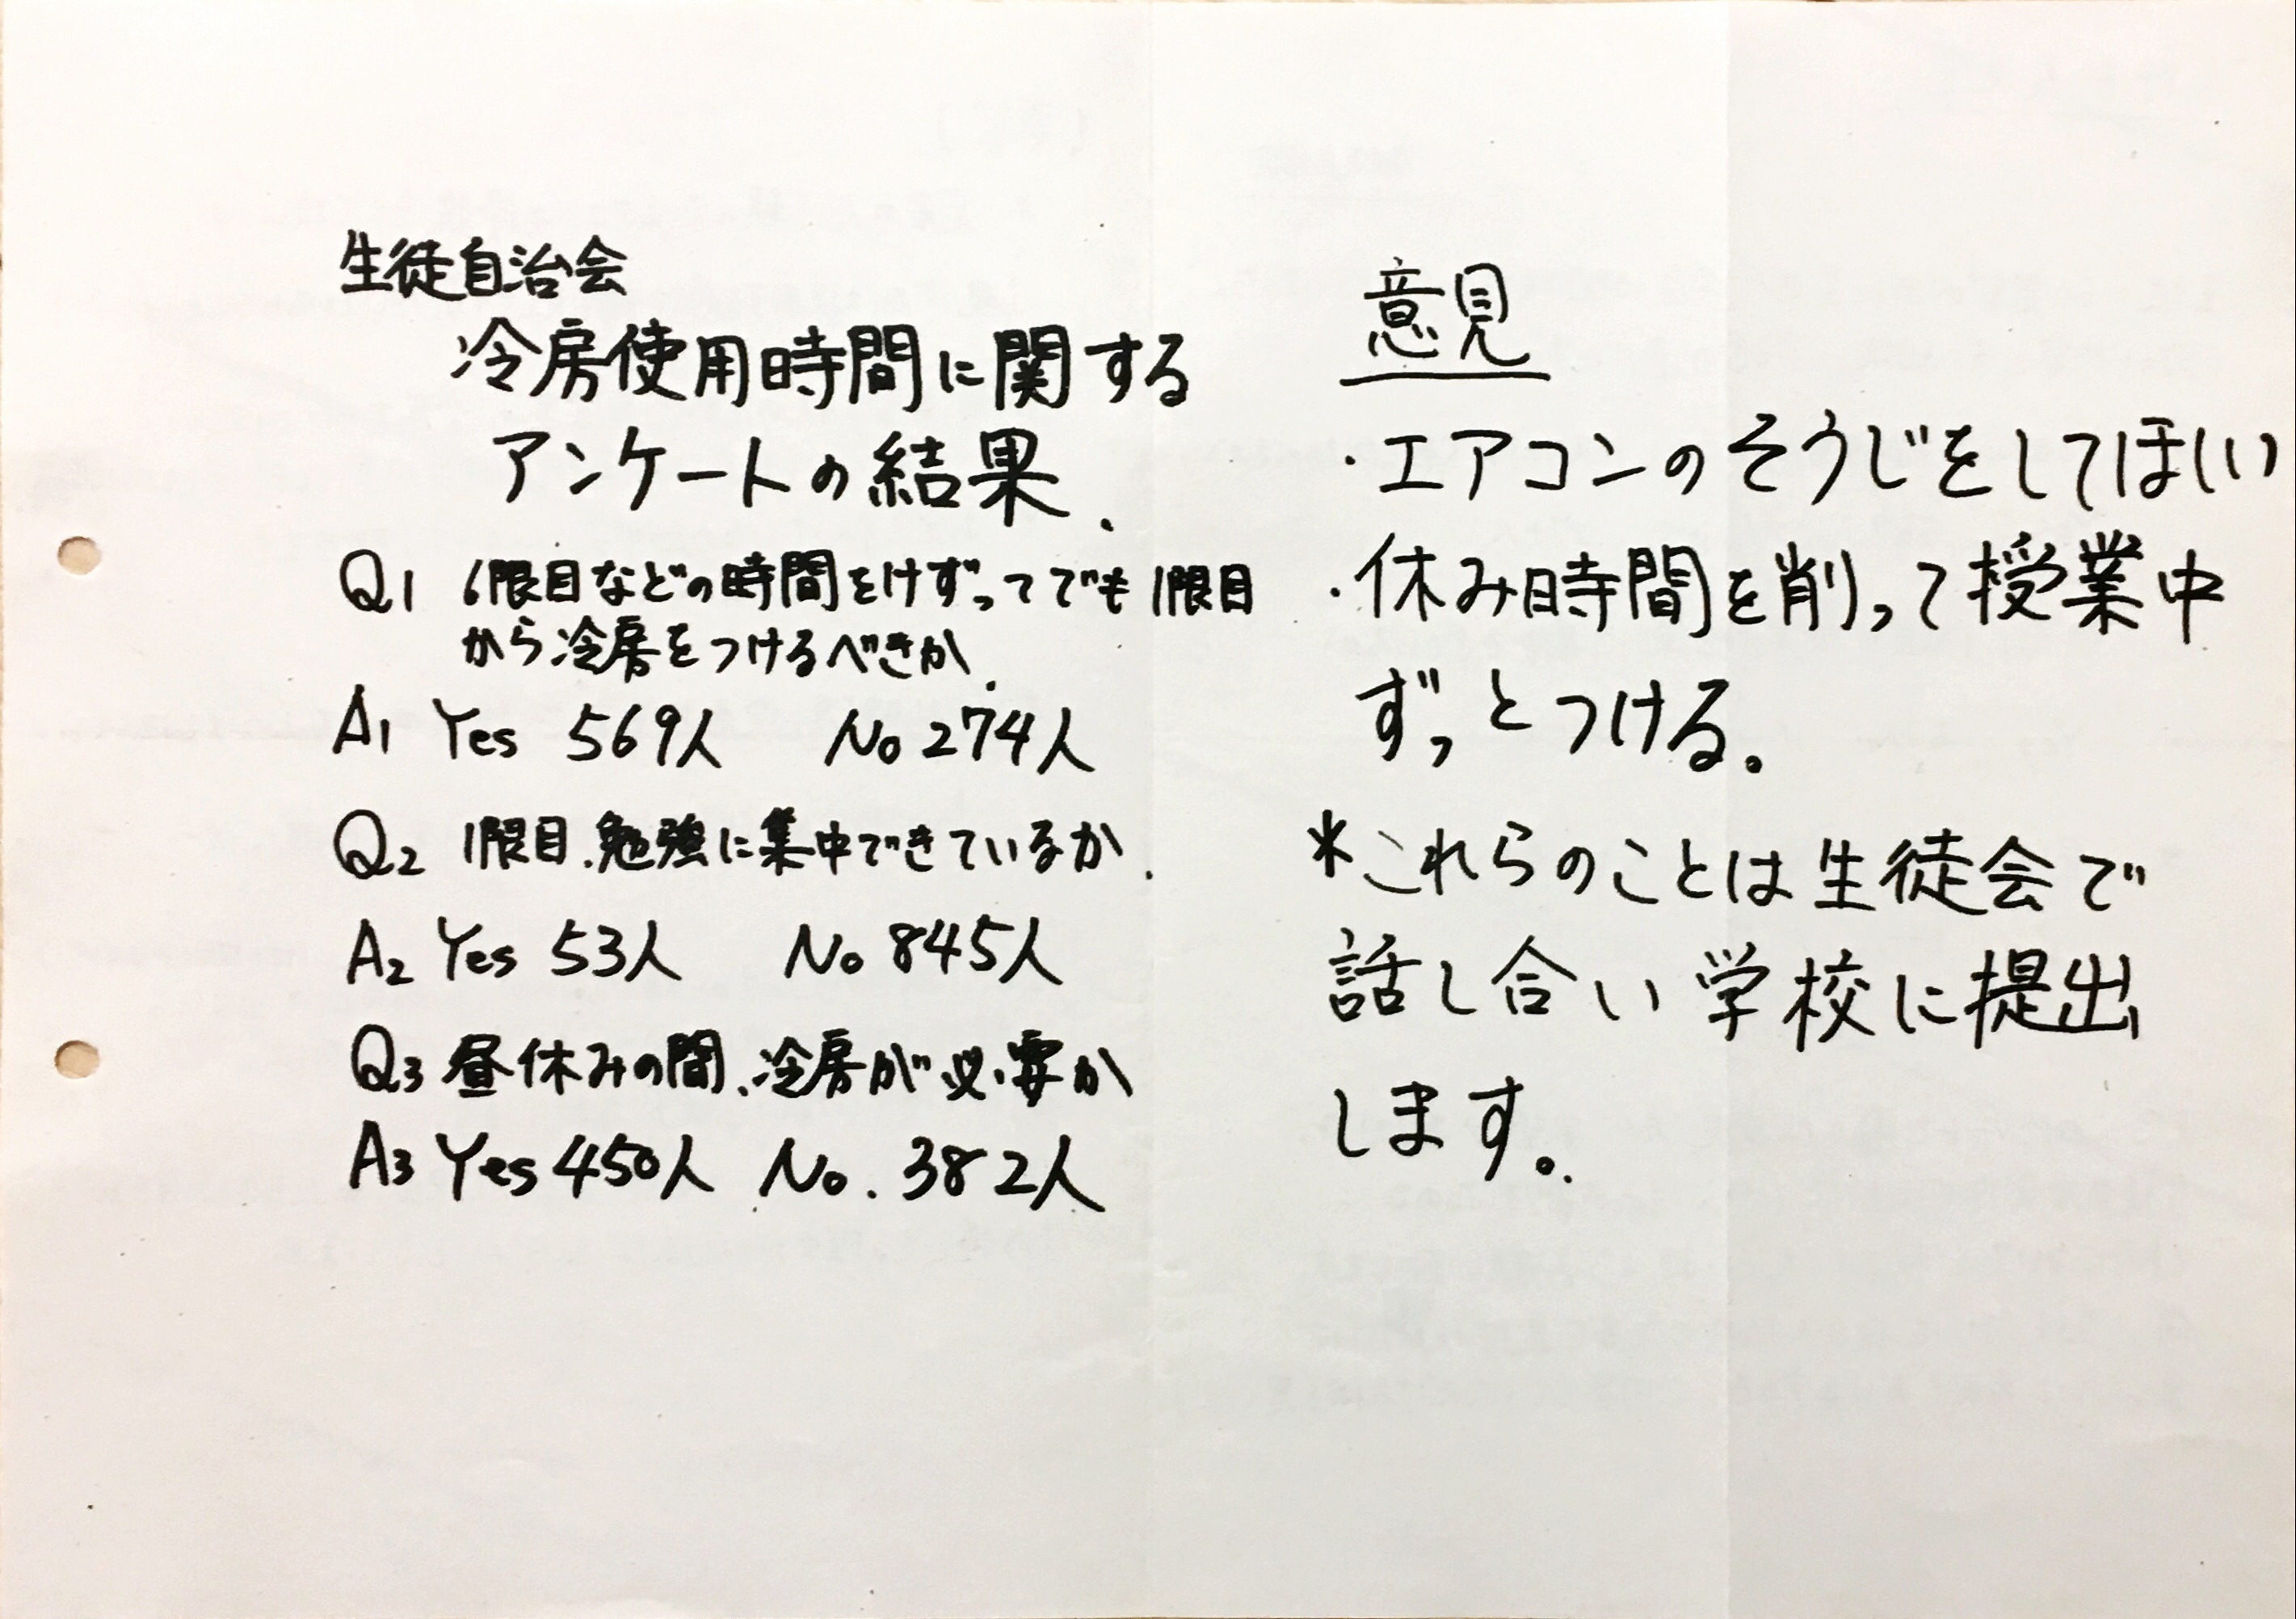 生徒自治会
冷房使用時間に関する
アンケートの結果.
Q1 6限目などの時間をけずってでも1限目
から冷房をつけるべきか.
A1 Yes 569人 No 274人
Q2 1限目.勉強に集中できているか.
A2 Yes 53人 No 845人
Q3 昼休みの間、冷房が必要か
A3 Yes 450人 No. 382人
意見
・エアコンのそうじをしてほしい
・休み時間を削って授業中
ずっとつける。
*これらのことは生徒会で
話し合い学校に提出
します。